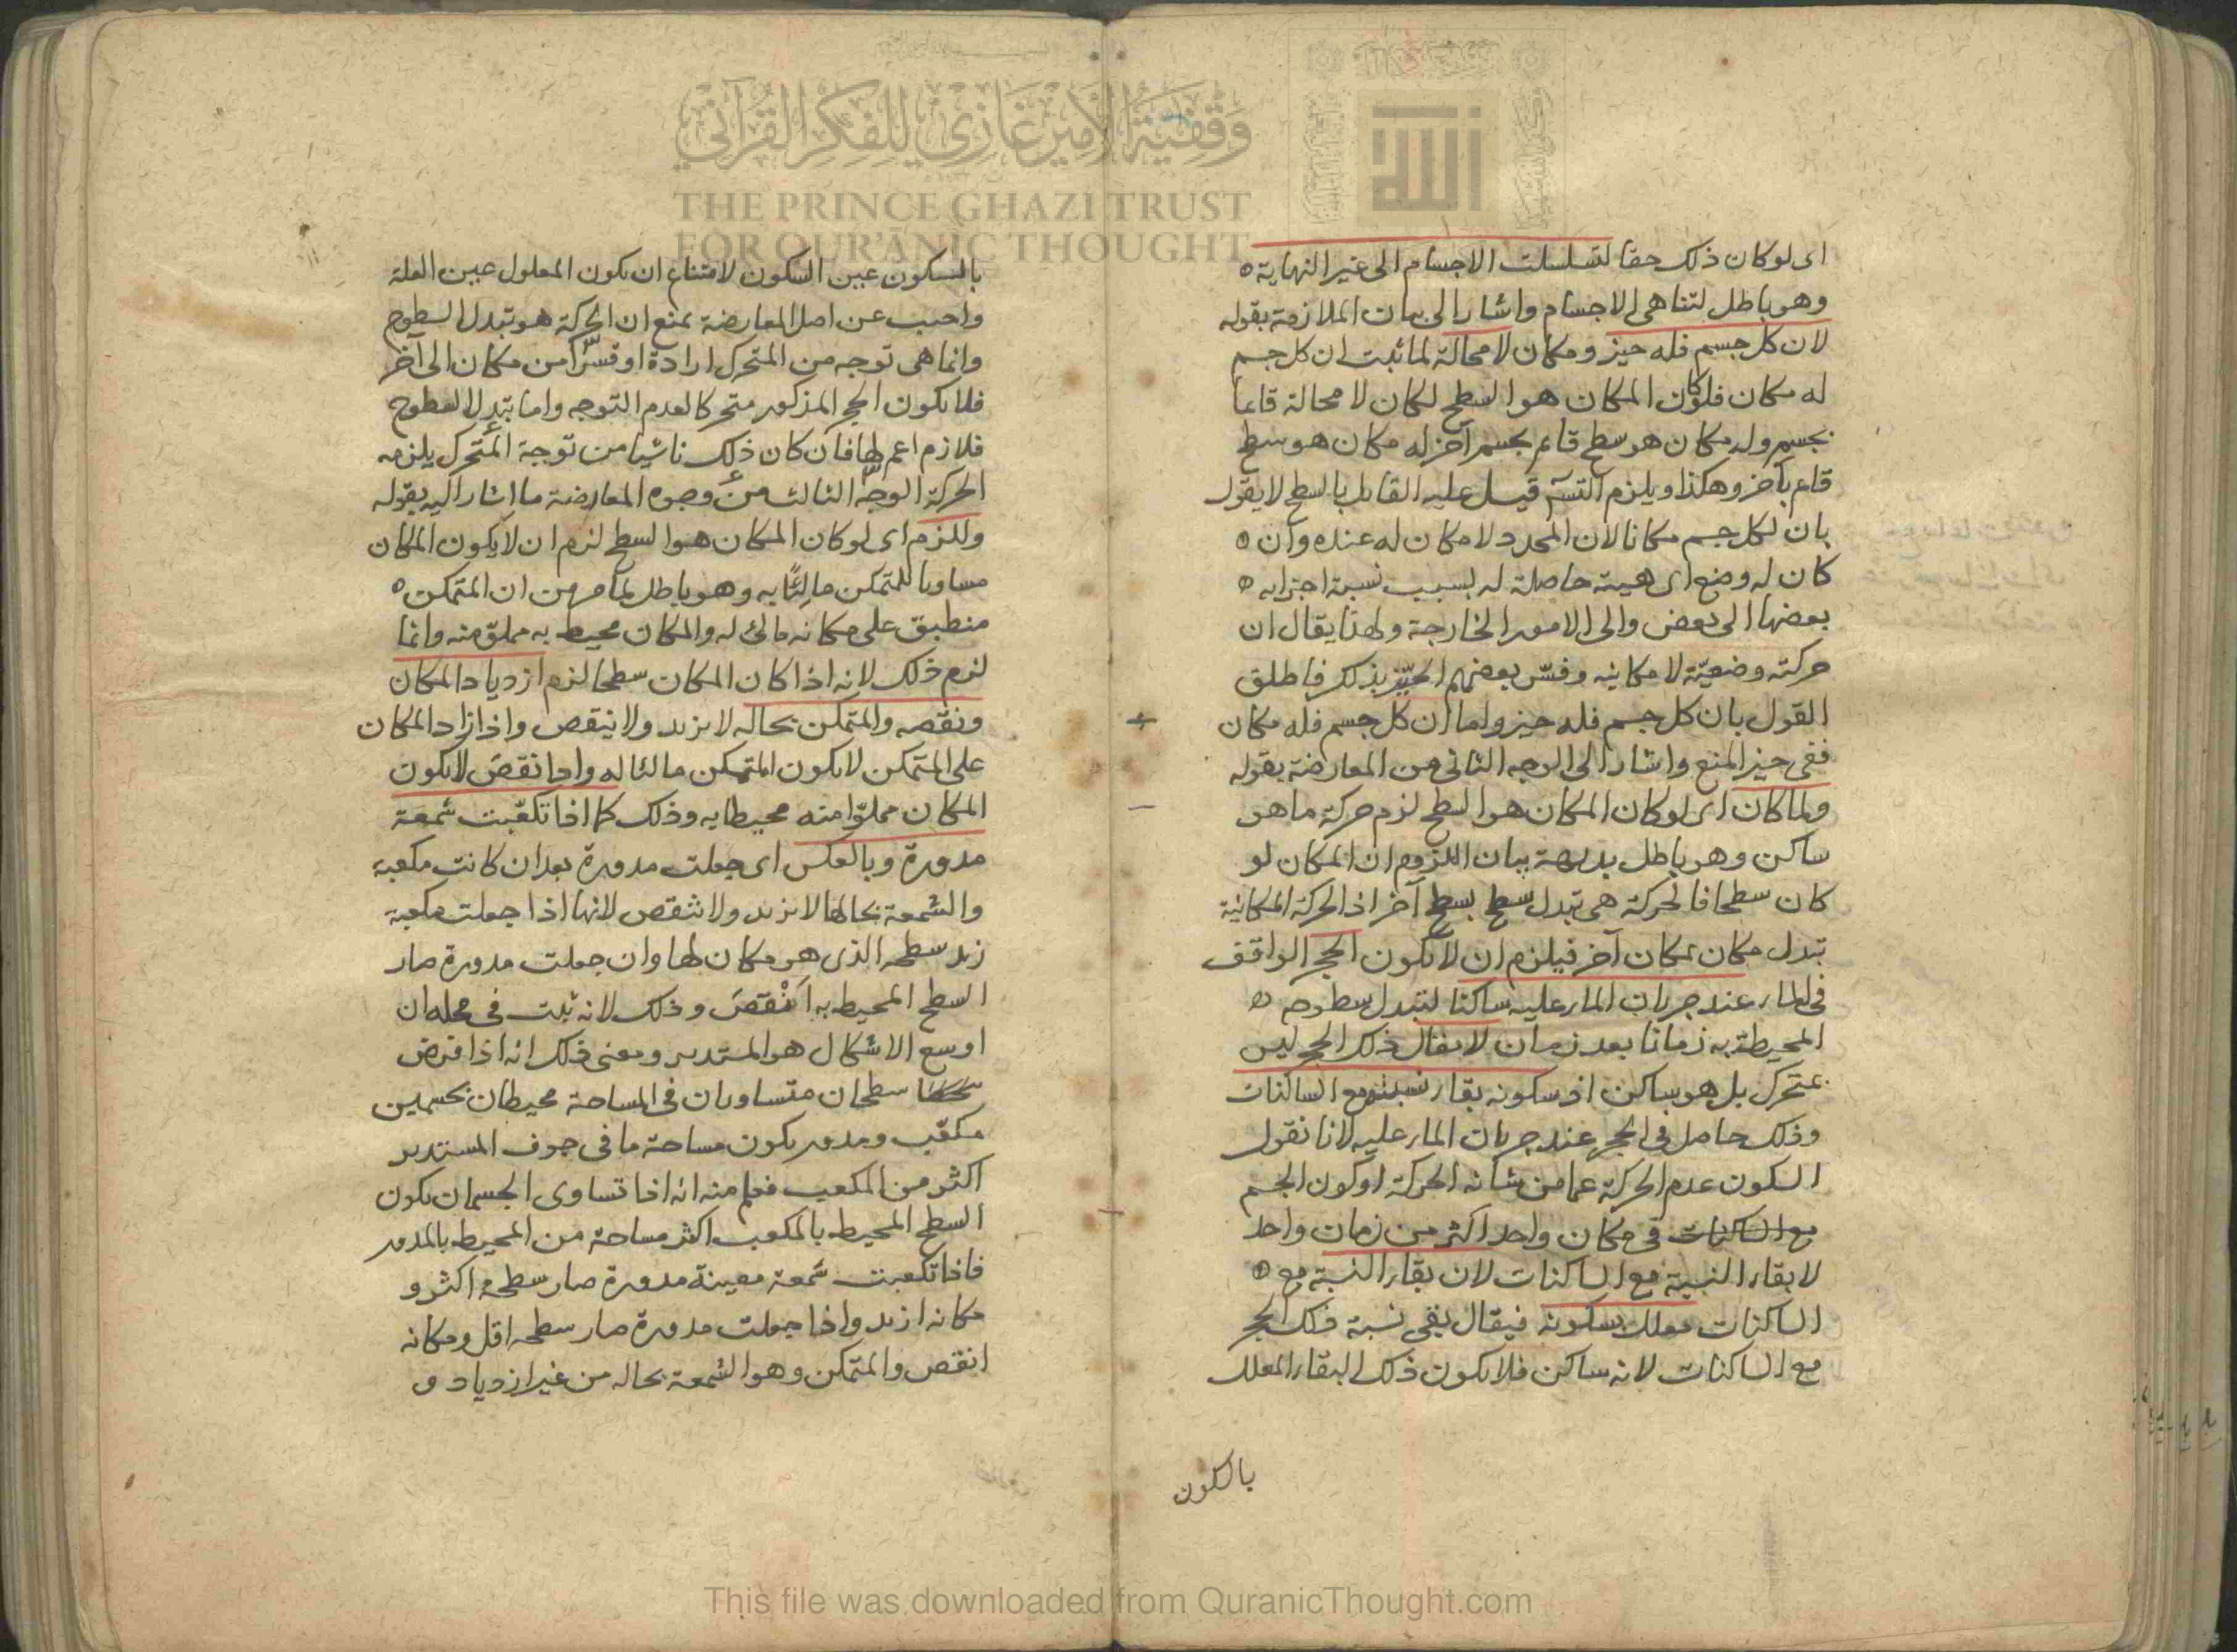 وقفية الأمير غازي للفكر القرآني
THE PRINCE GHAZI TRUST
FOR QUR'ĀNIC THOUGHT
اى لو كان ذلك حقا لتسلسلت الاجسام الى غير النهاية
وهو باطل لتناهى الاجسام واشار الى بيان الملازمة بقوله
لان كل جسم فله حيز ومكان لا محالة لما ثبت ان كل جسم
له مكان فلو كان المكان هو السطح لكان لا محالة قاىما
بجسم وله مكان هو سطح قاىم بجسم آخر له مكان هو سطح
قاىم بآخر وهكذا ويلزم التسـ قيل عليه القاىل بالسطح لا يقول
بان لكل جسم مكانا لان المحدد لا مكان له عنده وان
كان له وضع اى هيئة حاصلة له بسبب نسبة اجزايه
بعضها الى بعض والى الامور الخارجة ولهذا يقال ان
حركته وضعيّة لا مكانيه وفسّر بعضهم الحيّز بذلك فاطلق
القول بان كل جسم فله حيز واما ان كل جسم فله مكان
ففى حيز المنع واشار الى الوجه الثانى من المعارضة بقوله
ولما كان اى لو كان المكان هو السطح لزم حركة ما هو
ساكن وهو باطل بديهة بيان اللزوم ان المكان لو
كان سطحا فالحركة هى تبدل سطح بسطح آخر اذ الحركة المكانية
تبدل مكان بمكان آخر فيلزم ان لا يكون الحجر الواقف
فى الماء عند جريان الماء عليه ساكنا لتبدل سطوح
المحيطة به زمانا بعد زمان لا يقال ذلك الحجر ليس
بمتحرك بل هو ساكن اذ سكونه بقاء نسبته مع الساكنات
وذلك حاصل فى الحجر عند جريان الماء عليه لانا نقول
السكون عدم الحركة عما من شانه الحركة او كون الجسم
مع الساكنات فى مكان واحد اكثر من زمان واحد
لا بقاء النسبة مع الساكنات لان بقاء النسبة مع
الساكنات معلل بسكونه فيقال بقى نسبة ذلك الحجر
مع الساكنات لانه ساكن فلا يكون ذلك البقاء المعلل
بالسكون
بالسكون عين السكون لامتناع ان يكون المعلول عين العلة
واجيب عن اصل المعارضة بمنع ان الحركة هو تبدل السطوح
وانما هى توجه من المتحرك ارادة او قسرًا من مكان الى آخر
فلا يكون الحجر المذكور متحركا لعدم التوجه واما تبدل السطوح
فلازم اعم لها فان كان ذلك ناشيا من توجة المتحرك يلزمه
الحركة الوجه الثالث من وجوه المعارضة ما اشار اليه بقوله
وللزم اى لو كان المكان هو السطح لزم ان لا يكون المكان
مساويا للمتمكن مالئًا به وهو باطل لما مر من ان المتمكن
منطبق على مكانه مالئ له والمكان محيط به مملوّ منه وانما
لزم ذلك لانه اذا كان المكان سطحا لزم ازدياد المكان
ونقصه والمتمكن بحاله لا يزيد ولا ينقص واذا زاد المكان
على المتمكن لا يكون المتمكن مالئا له واذا نقص لا يكون
المكان مملوّا منه محيطا به وذلك كما اذا تكعّبت شمعة
مدورة وبالعكس اى جعلت مدورة بعد ان كانت مكعبة
والشمعة بحالها لا يزيد ولا تنقص لانها اذا جعلت مكعبة
زيد سطحه الذى هو مكان لها وان جعلت مدورة صار
السطح المحيط به انقص وذلك لانه ثبت فى محله ان
اوسع الاشكال هو المستدير ومعنى ذلك انه اذا فرض
سطحان متساويان فى المساحة محيطان بجسمين
مكعّب ومدور يكون مساحة ما فى جوف المستدير
اكثر من المكعب فعلم منه انه اذا تساوى الجسمان يكون
السطح المحيط بالمكعب اكثر مساحة من المحيط بالمدور
فاذا تكعبت شمعة معينة مدورة صار سطحه اكثر و
مكانه ازيد واذا جعلت مدورة صار سطحه اقل ومكانه
انقص والمتمكن وهو الشمعة بحاله من غير ازدياد و
This file was downloaded from QuranicThought.com